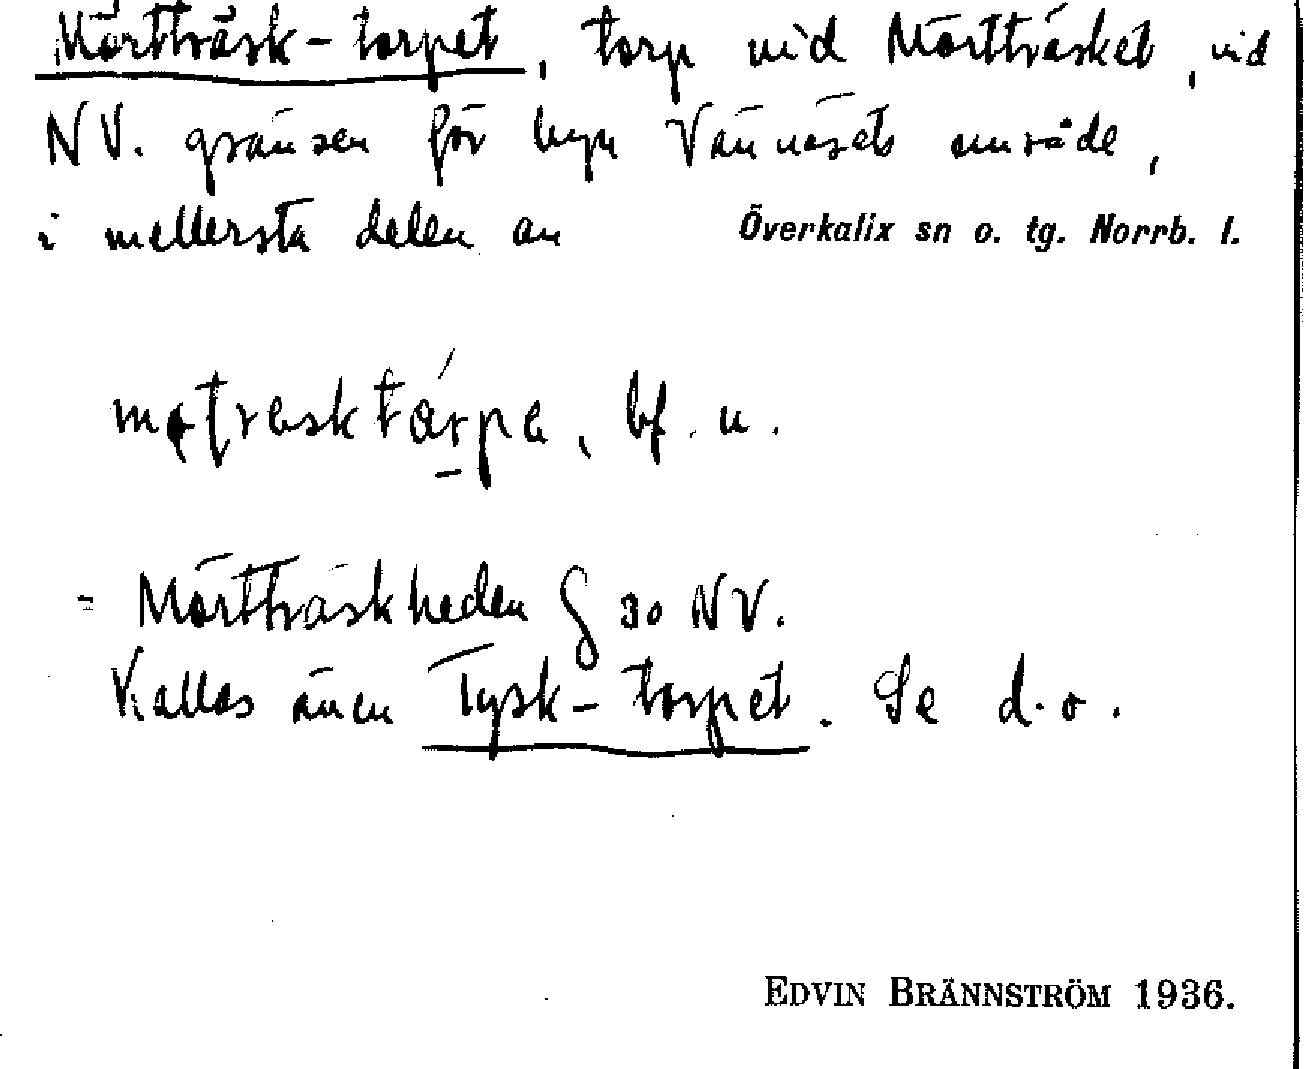 Mörtträsk-torpet, torp vid Mörtträsket, vid
NV. gränsen för byn Vännäsets område,
i mellersta delen av Överkalix sn o. tg. Norrb. l.
bf. n.
= Mörtträskheden § 30 NV.
Kallas även Tysk-torpet. Se d.o.
EDVIN BRÄNNSTRÖM 1936.